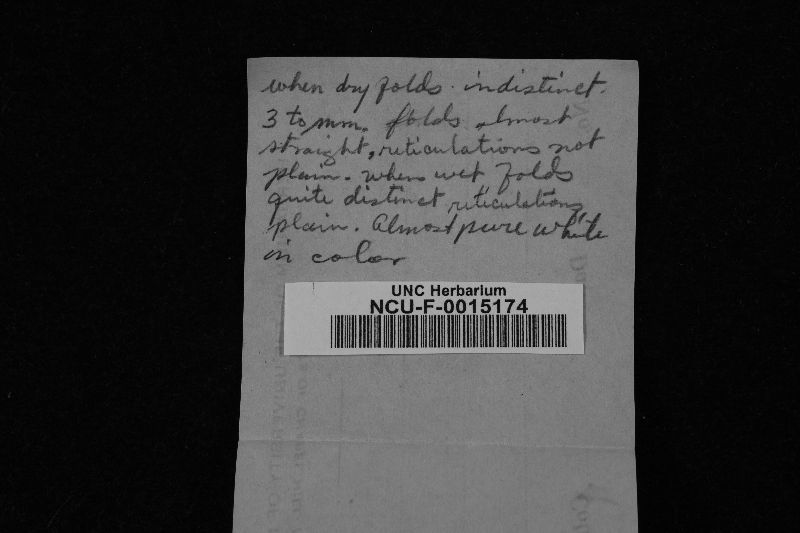 when dry folds indistinct.
3 to mm. folds almost
straight, reticulations not
plain. when wet folds
quite distinct reticulations
plain. Almost pure white
in color
UNC Herbarium
NCU-F-0015174